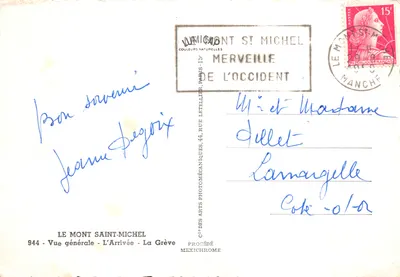 LUMICAP
COULEURS NATURELLES
LE MONT ST MICHEL
MERVEILLE
DE L'OCCIDENT
LE MONT-ST-M
MANCHE
15F
Bon souvenir
Jeanne Degoix
Mr et Madame
Lamargelle
Cote-d'or
LE MONT SAINT-MICHEL
944 - Vue générale - L'Arrivée - La Grève
PROCÉDÉ
MEXICHROME
CIE DES ARTS PHOTOMÉCANIQUES, 44, RUE LETELLIER, PARIS-15e